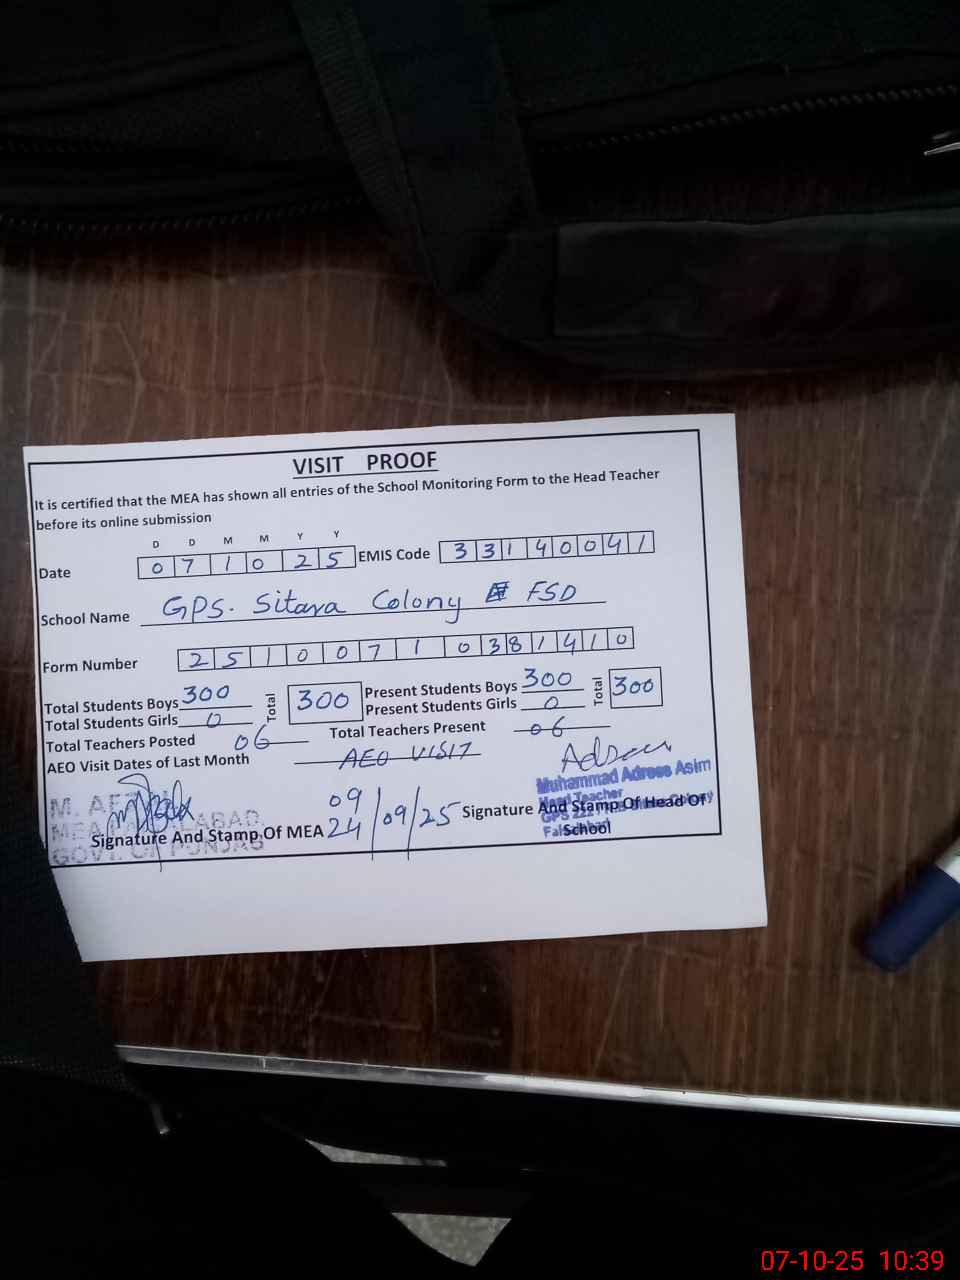 VISIT PROOF
It is certified that the MEA has shown all entries of the School Monitoring Form to the Head Teacher
before its online submission
D D M M Y Y
Date 0 7 1 0 2 5 EMIS Code 3 3 1 4 0 0 4 1
School Name GPS. Sitara Colony FSD
Form Number 2 5 1 0 0 7 1 0 3 8 1 4 1 0
Total Students Boys 300 Total 300 Present Students Boys 300 Total 300
Total Students Girls 0 Present Students Girls 0
Total Teachers Posted 06 Total Teachers Present 06
AEO Visit Dates of Last Month AEO VISIT
Muhammad Adrees Asim
Head Teacher
GPS 222
Faisalabad
M.
MEA
GOVT. OF PUNJAB
09
24/09/25
Signature And Stamp Of MEA
Signature And Stamp Of Head Of
School
07-10-25 10:39